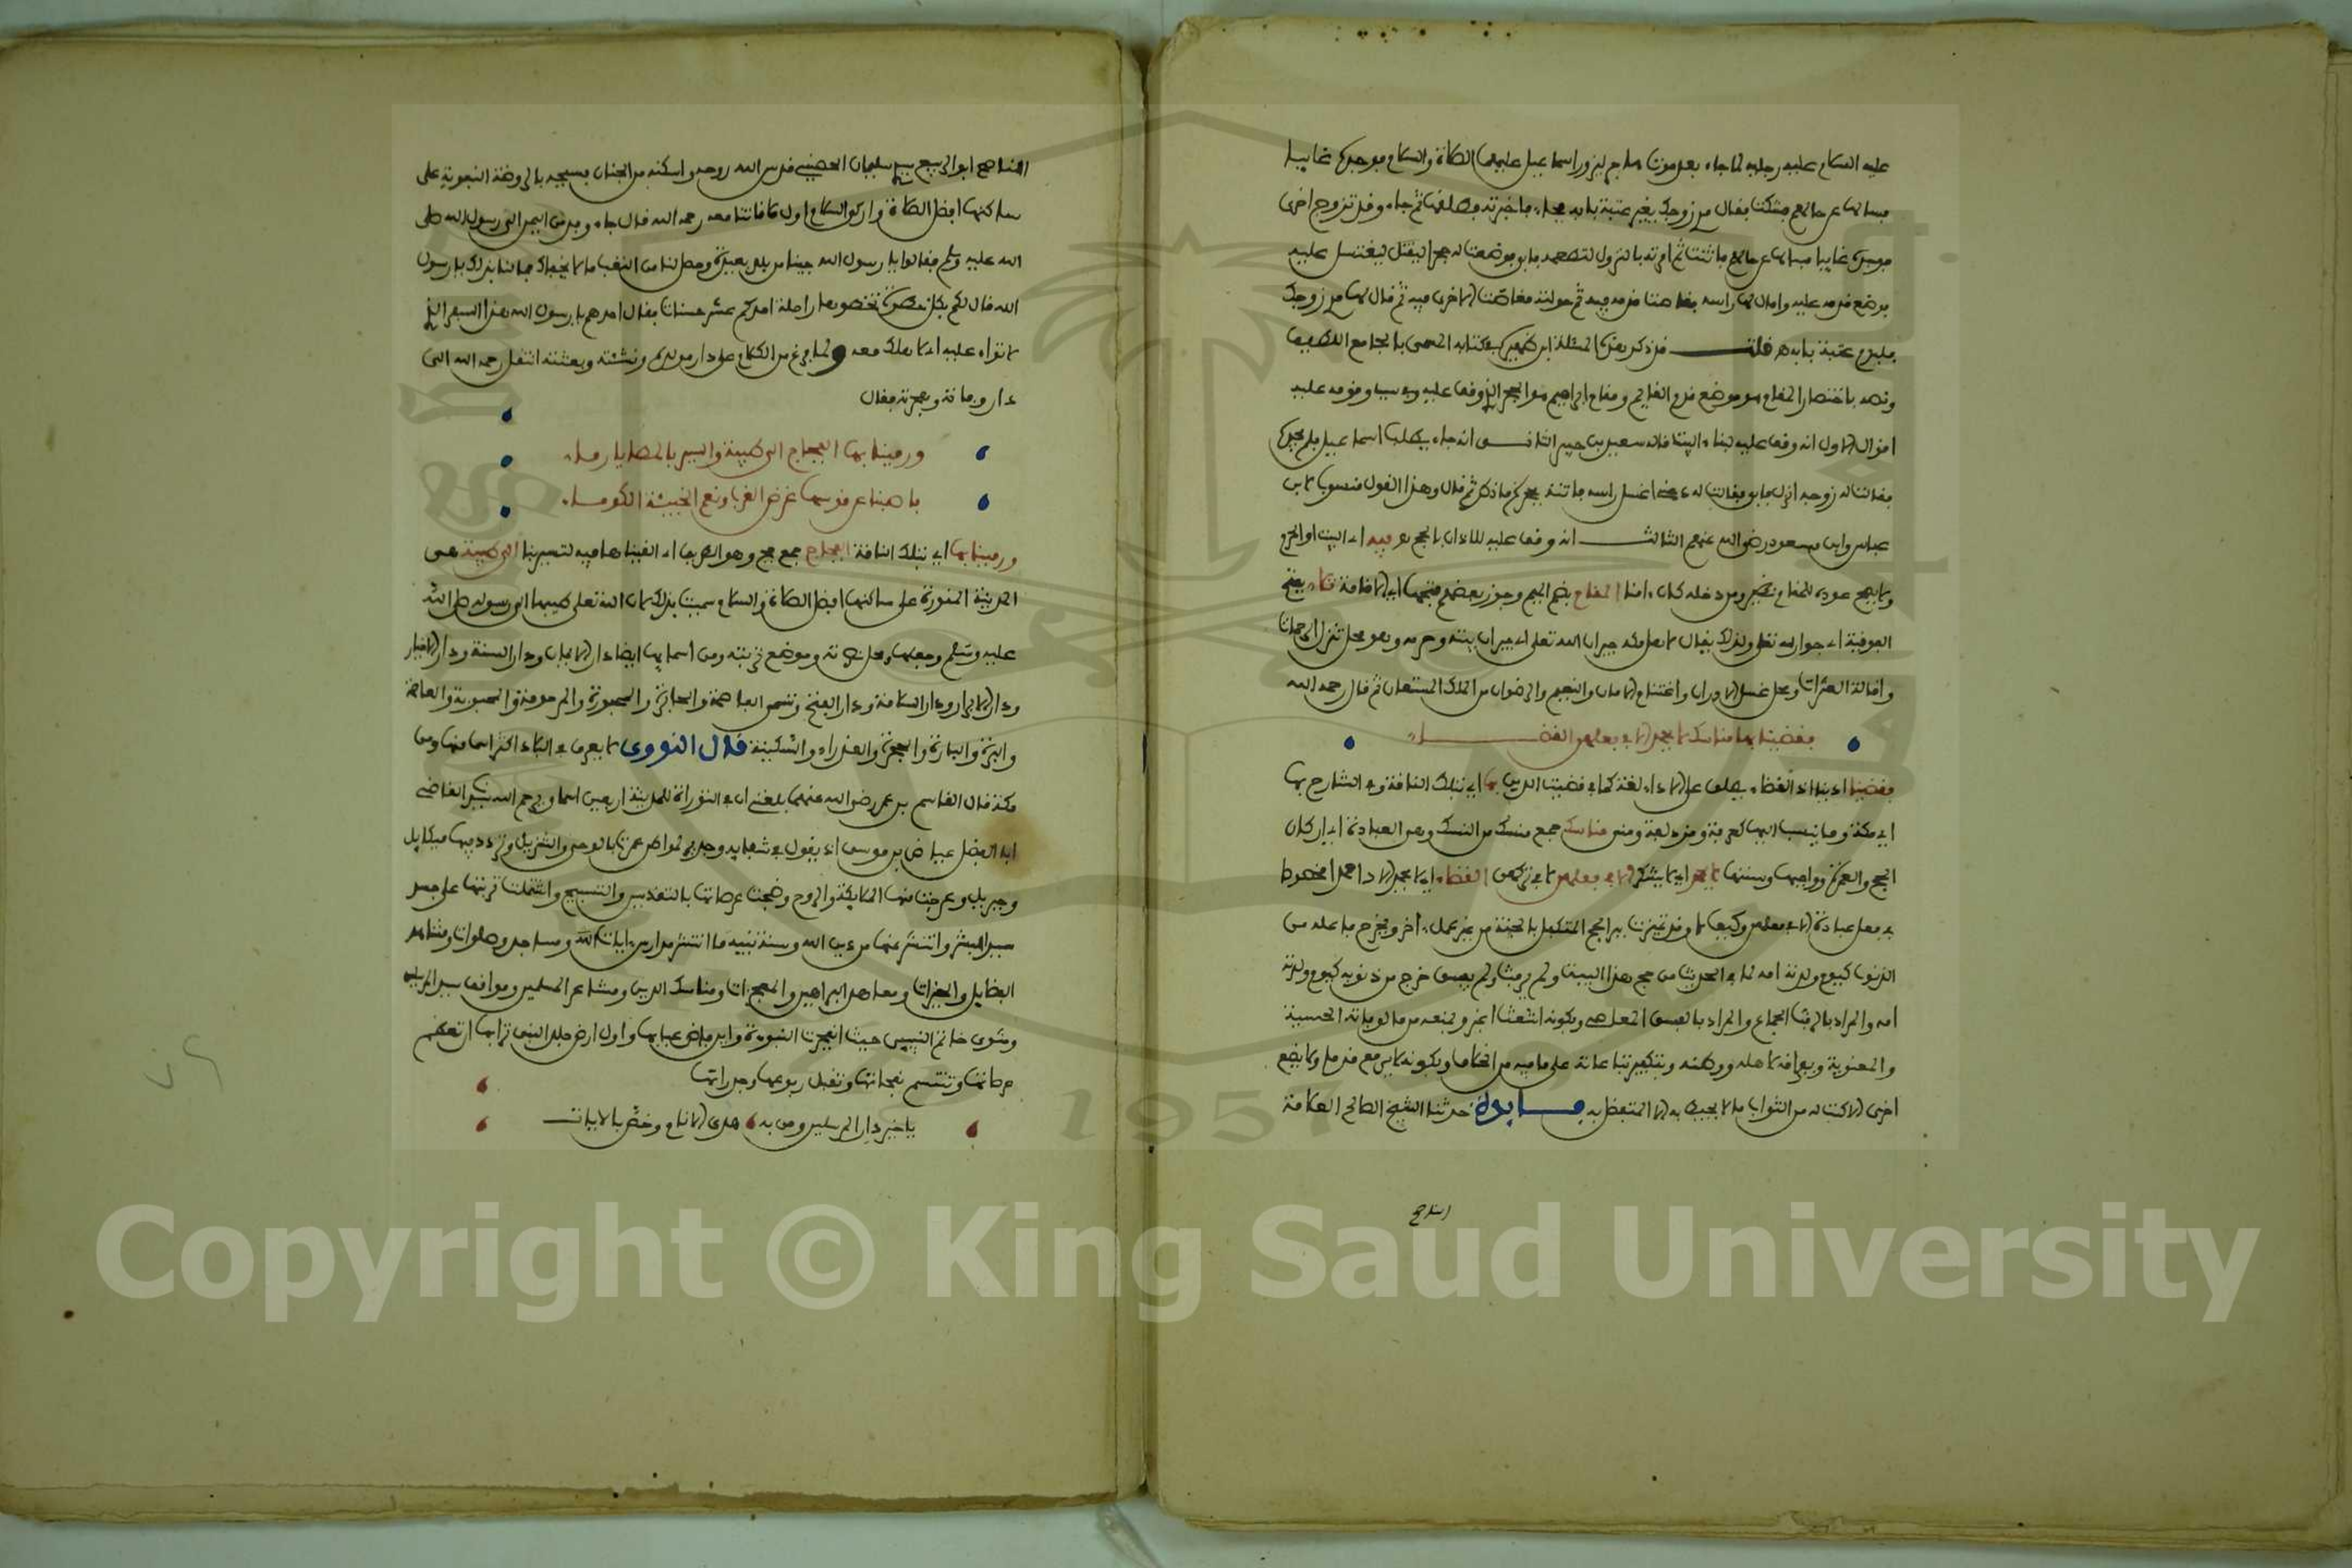 عليه السلام عليه رجليه لما جاء بعد موت هاجر يزور اسماعيل عليهما الصلاة والسلام فوجده غايبا
فسالها عن حالهم فشكت فقال مري زوجك يغير عتبة بابه فجاء فاخبرته فطلقها ثم جاء وقد تزوج اخرى
فوجده غايبا فسالها عن حالهم فاثنت ثم امرته بالنزول لتطعمه فابى فوضعت له حجرا ليغتسل عليه
فوضع قدمه عليه وامال لها راسه فغاصتا قدمه فيه ثم حولته فغاصت الاخرى فيه ثم قال لها مري زوجك
عتبة بابه قلت قد ذكر هذه المسئلة ابن ظهيرة في كتابه المسمى بالجامع اللطيف
ونصه باختصار المقام هو موضع قدم القايم ومقام ابراهيم هو الحجر الذي وقف عليه وفي سبب وقوفه عليه
اقوال الاول انه وقف عليه لبناء البيت قاله سعيد بن جبير الثاني انه جاء يطلب اسماعيل فلم يجده
فقالت له زوجه انزل فابى فقالت له دعني اغسل راسك فاتته بحجر كما ذكر ثم قال وهذا القول منسوب لابن
عباس وابن مسعود رضي الله عنهم الثالث انه وقف عليه للاذان بالحج فيه اي البيت او الحرم
ولا يصح عوده للمقام المقام بضم الميم وجوز بعضهم فتحها اي الاقامة
الفوقية اي جوار الله تعلى ولذلك يقال لاهل مكة جيران الله تعلى اي جيران بيته وحرمه وهو محل تنزل الرحمات
واقالة العثرات ومحل غسل الادران واغتنام الامان والنعيم والرضوان من الملك المستعان ثم قال رحمه الله
فقضينا بها مناسك لا يحمد الا في فعلهن القضاء
فقضينا ادينا اذ القضاء يطلق على الاداء لغة كما في قضيت الدين بها اي بتلك الناقة وفي الشارح بها
اي مكة وما ينسب اليها كعرفة ومزدلفة ومنى مناسك جمع منسك من النسك وهو العبادة اي اركان
الحج والعمرة وواجبها وسننها لا يحمد اي لا يشكر الا في فعلهن لا في تركهن القضاء اي لا يحمد الاداء
في فعل عبادة الا في فعلهن وكيف لا وقد تميزت بين الحج المتكفل بالجنة من غير عمل اخر ويخرج فاعله من
الذنوب كيوم ولدته امه لما في الحديث من حج هذا البيت ولم يرفث ولم يفسق خرج من ذنوبه كيوم ولدته
امه والمراد بالرفث الجماع والمراد بالفسق المعاصي وبكونه اشعث اغبر وبمنعه من مالوفاته الحسية
والمعنوية وبفراقه لاهله ووطنه وبتكبير تبعاته على ما فيه من الخلاف وبكونه لا يرفع قدما ولا يضع
اخرى الا كتب له من الثواب ما لا يحيط به الا المتفضل به فايدة حدثنا الشيخ الصالح العلامة
الناصح ابو الربيع سليمان الحضيني قدس الله روحه واسكنه من الجنان فسيحه بالروضة النبوية على
ساكنها افضل الصلاة وازكى السلام اول ملاقاتنا معه رحمه الله قال جاء وفد من اليمن الى رسول الله صلى
الله عليه وسلم فقالوا يا رسول الله جينا من بلد بعيدة وحصل لنا من التعب ما لا يخفاك فما لنا بذلك يا رسول
الله قال لكم بكل خطوة تخطوها راحلة احدكم عشر حسنات فقال احدهم يا رسول الله هذا السفر الذي
لا ثواب عليه اي لا هلك معه ولما فرغ من الكلام على دار مولده ونشئته وبعثته انتقل رحمه الله الى
دار وفاته وهجرته فقال
ورمينا بها الفجاج الى طيبة والسير بالمطايا رماء
فاصبنا عن قوسها غرض القرب ونعم الخبيئة الكوماء
ورمينا بها اي بتلك الناقة الفجاج جمع فج وهو الطريق اي القيناها فيه لتسير بنا الى طيبة هي
المدينة المنورة على ساكنها افضل الصلاة والسلام سميت بذلك لان الله تعلى طيبها الى رسوله صلى الله
عليه وسلم وجعلها محل نصرته وموضع تربته ومن اسمايها ايضا دار الايمان ودار السنة ودار الاخيار
ودار الابرار ودار السلامة ودار الفتح وتسمى العاصمة والجابرة والمجبورة والمرحومة والمحبوبة والقاصمة
والبرة والبارة والبحرة والعذراء والسكينة قال النووي لا يعرف في البلاد اكثر اسما منها ومن
مكة قال القاسم بن عمر رضي الله عنهما بلغني ان في التوراة للمدينة اربعين اسما ورحم الله سيدي القاضي
ابا الفضل عياض بن موسى اذ يقول في شفايه وجدير لمواطن عمرت بالوحي والتنزيل وتردد فيها ميكايل
وجبريل وعرجت منها الملايكة والروح وضجت عرصاتها بالتقديس والتسبيح واشتملت تربتها على جسد
سيد البشر وانتشر عنها من دين الله وسنة نبيه ما انتشر مدارس ايات الله ومساجد وصلوات ومشاهد
الفضايل والخيرات ومعاهد البراهين والمعجزات ومناسك الدين ومشاعر المسلمين ومواقف سيد المرسلين
ومثوى خاتم النبيين حيث انفجرت النبوة واين فاض عبابها واول ارض جلد النبي ترابها ان تعظم
عرصاتها وتتنسم نفحاتها وتقبل ربوعها وجدراتها
يا خير دار المرسلين ومن به هدي الانام وخص بالايات
الناصح